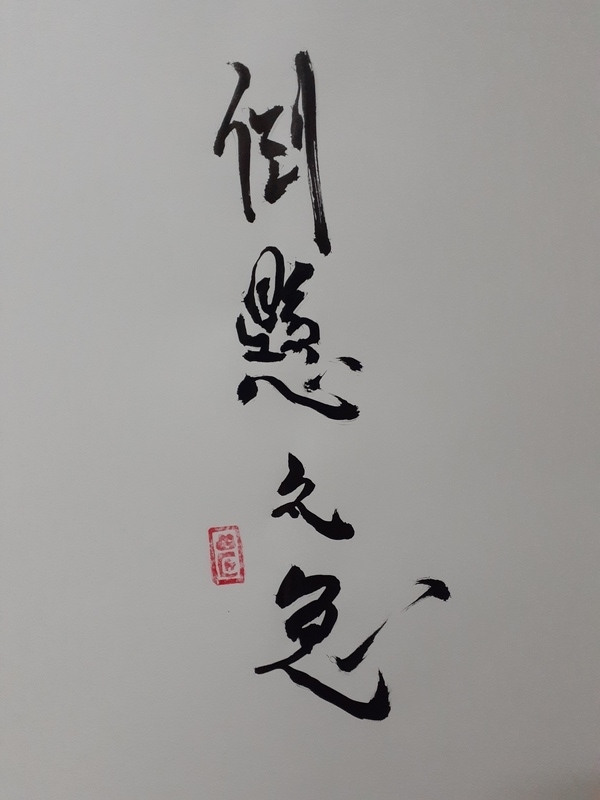 倒懸之急